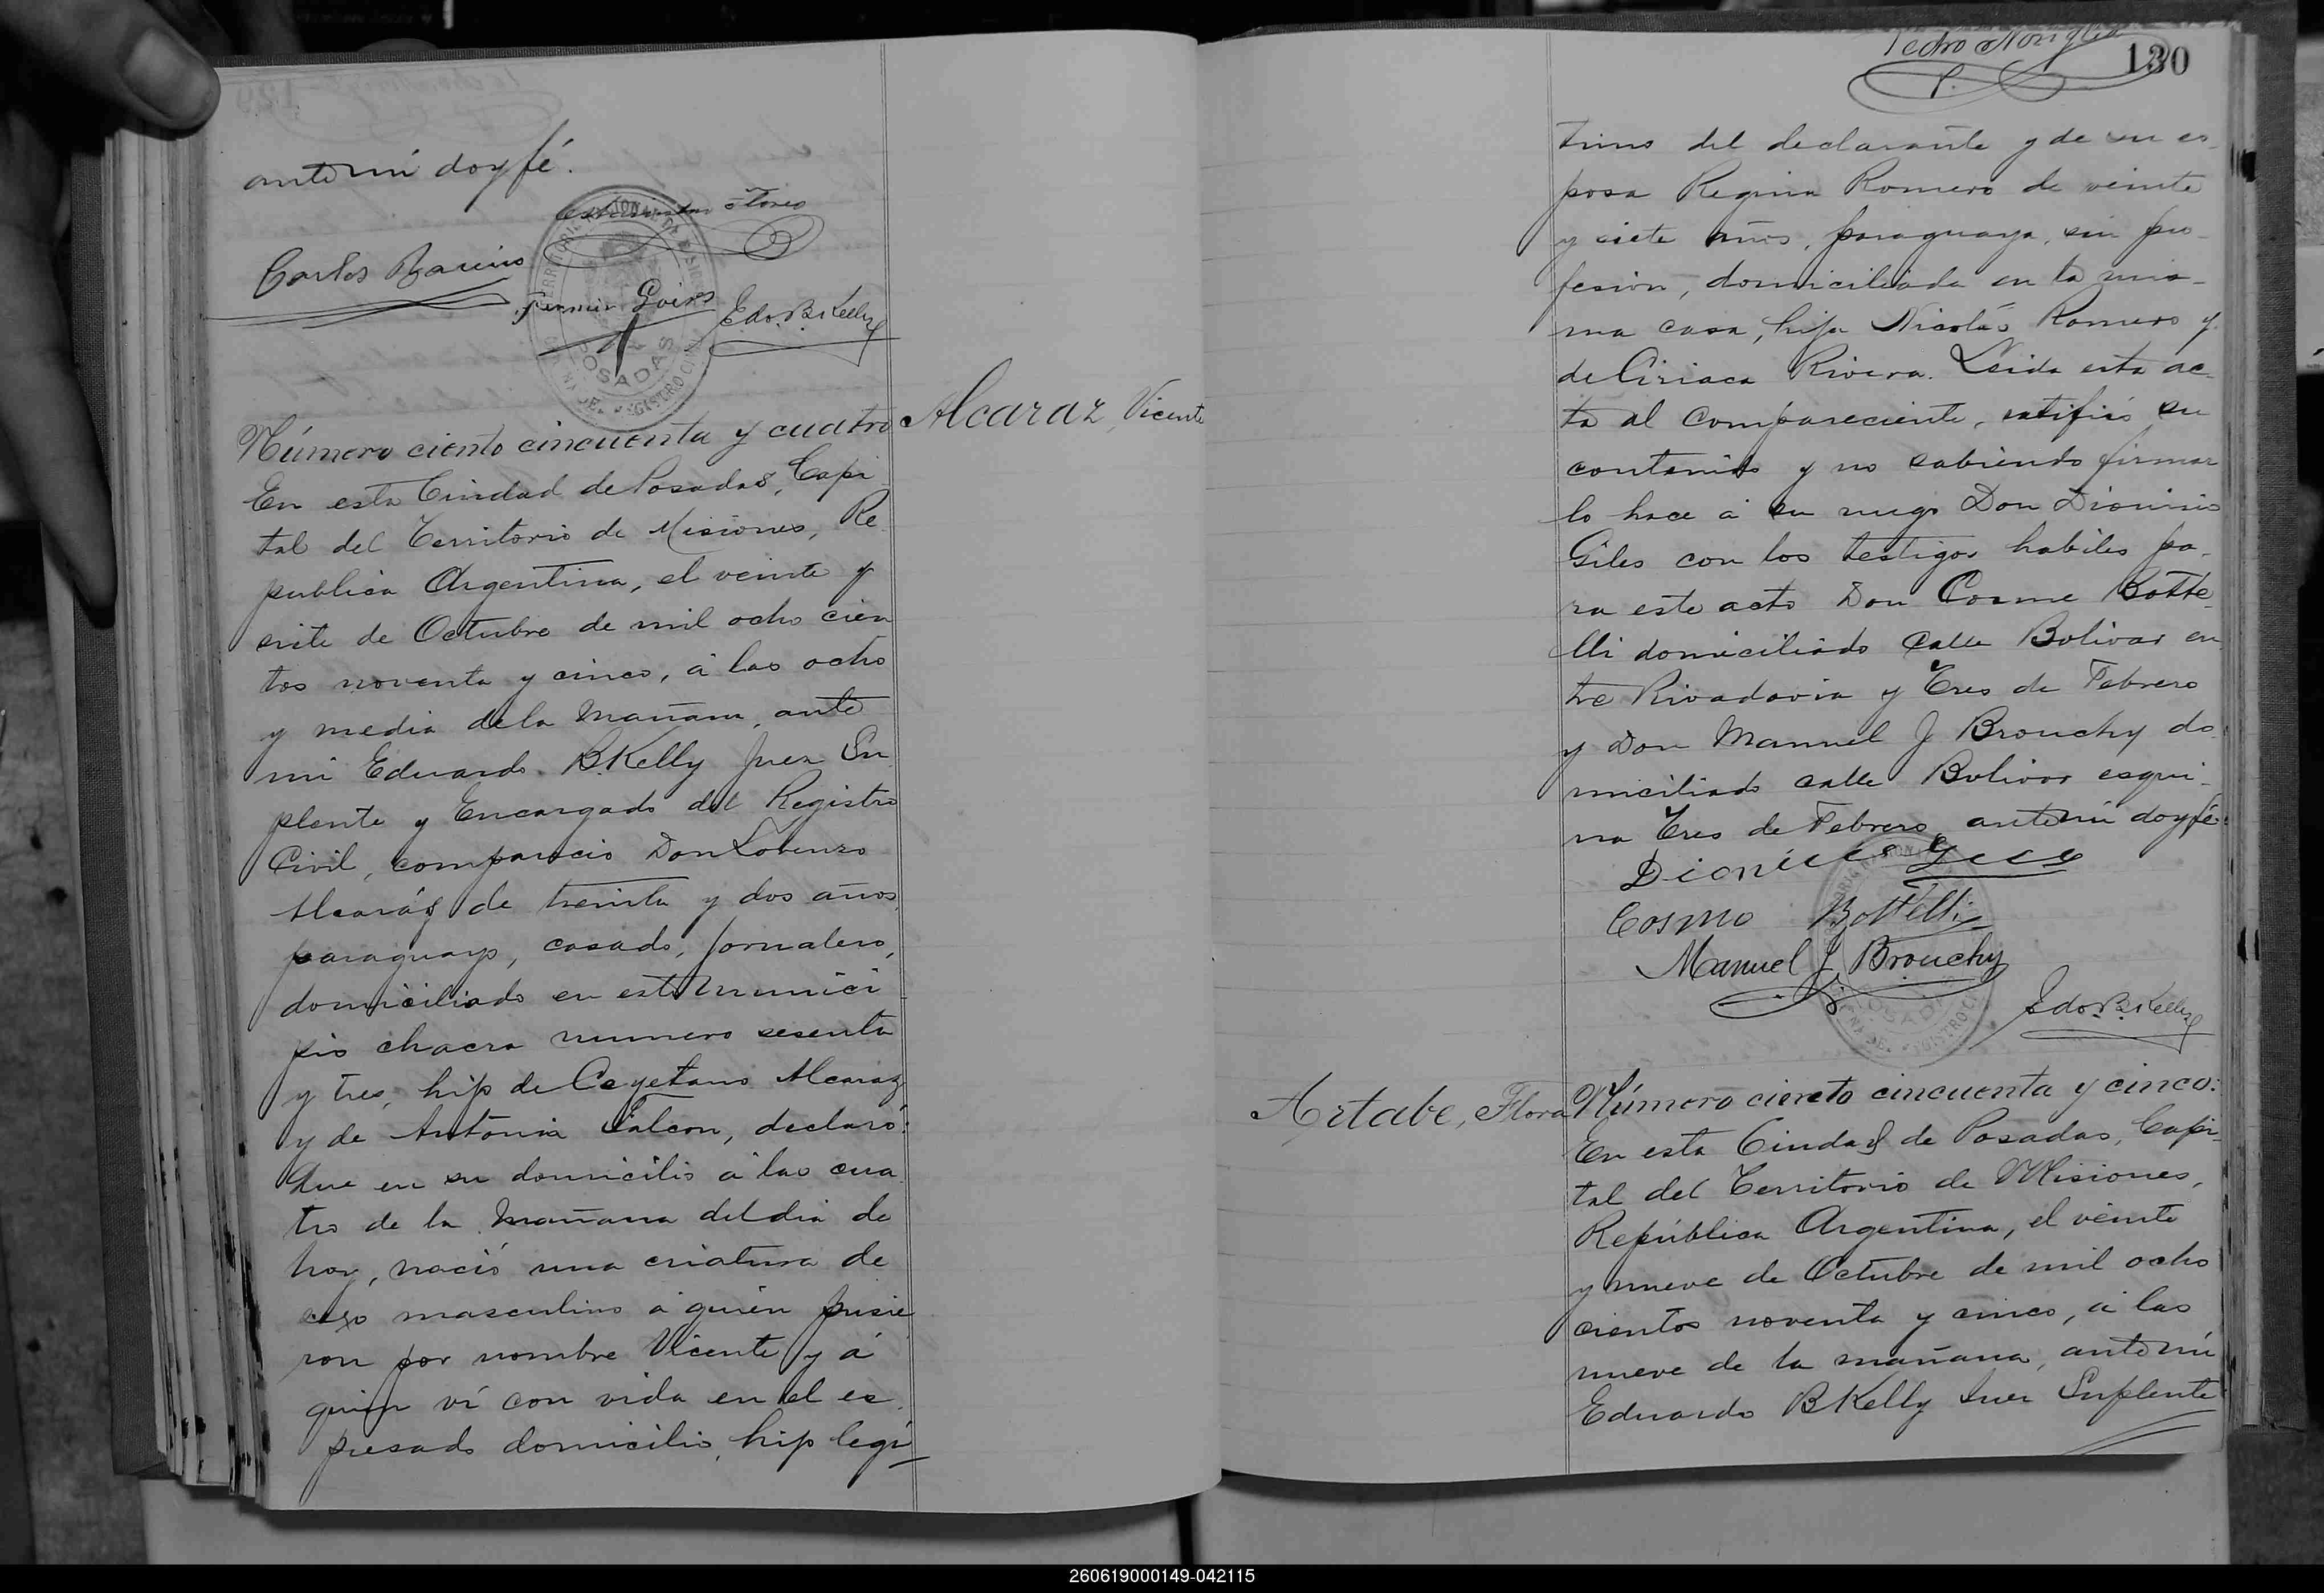 ante mí doy fé.
Carlos
Fermin Goires
Edo. B. Kelly
TERRITORIO NACIONAL DE MISIONES
POSADAS
REGISTRO CIVIL
Alcaraz, Vicente
Número ciento cincuenta y cuatro
En esta Ciudad de Posadas, Capi
tal del Territorio de Misiones, Re
publica Argentina, el veinte y
siete de Octubre de mil ocho cien
tos noventa y cinco, á las ocho
y media de la Mañana, ante
mi Eduardo B. Kelly Juez Su
plente y Encargado del Registro
Civil, compareció Don Lorenzo
Alcaráz de treinta y dos años,
paraguayo, casado, jornalero,
domiciliado en este munici
pio chacra numero sesenta
y tres, hijo de Cayetano Alcaraz
y de Antonia Falcon, declaró:
Que en su domicilio á las cua
tro de la Mañana del dia de
hoy, nació una criatura de
sexo masculino á quien pusie
ron por nombre Vicente y á
quien ví con vida en el es
presado domicilio, hijo legí
Pedro
130
timo del declarante y de su es
posa Regina Romero de veinte
y siete años, paraguaya, sin pro
fesion, domiciliada en la mis-
ma casa, hija Nicolás Romero y
de Ciriaca Rivera. Leida esta ac
ta al Compareciente, ratificó su
contenido y no sabiendo firmar
lo hace á su ruego Don Dionisio
Giles con los testigos habiles pa
ra este acto Don Cosme Botte
lli domiciliado Calle Bolivar en
tre Rivadavia y Tres de Febrero
y Don Manuel J Brouchy do
miciliado calle Bolivar esqui-
na Tres de Febrero ante mí doy fé:
Cosmo Bottelli
Manuel J. Brouchy
Edo. B. Kelly
Artabe, Flora
Número ciento cincuenta y cinco:
En esta Ciudad de Posadas, Capi
tal del Territorio de Misiones,
República Argentina, el veinte
y nueve de Octubre de mil ocho
cientos noventa y cinco, á las
nueve de la mañana, ante mí
Eduardo B Kelly Juez Suplente
260619000149-042115